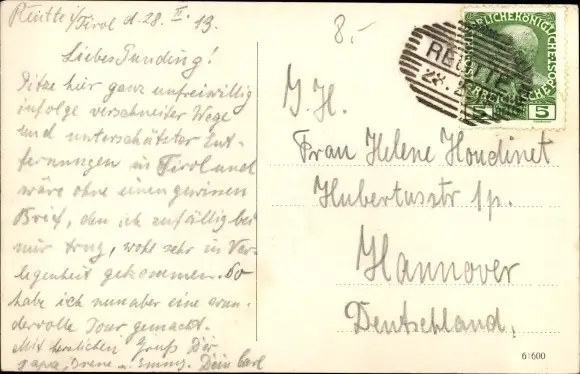 Reutte i/Tirol d. 28. II. 13.
8.-
Liebes Punding!
Sitze hier ganz unfreiwillig
infolge verschneiter Wege
und unterschätzter Ent-
fernungen in Tirol und
wäre ohne einen gewissen
Brief, den ich zufällig bei
mir trug, wohl sehr in Ver-
legenheit gekommen. So
habe ich nun aber eine wun-
dervolle Tour gemacht.
Mit herzlichen Gruß Dir
Papa, Irene u. Emmy. Dein Carl
REUTTE
28.
5 5
Frau Helene Houdinet
Hubertusstr 1p.
Hannover
Deutschland.
61600